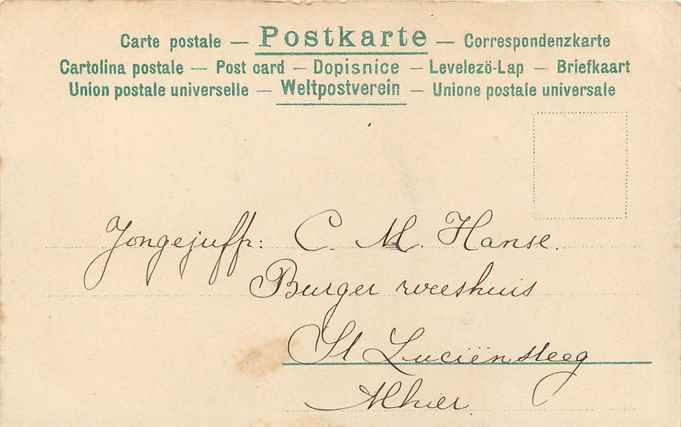 Carte postale — Postkarte — Correspondenzkarte
Cartolina postale — Post card — Dopisnice — Levelezö-Lap — Briefkaart
Union postale universelle — Weltpostverein — Unione postale universale
Jongejuffr: C. M. Hanse.
Burger weeshuis
St Luciënsteeg
Alhier.